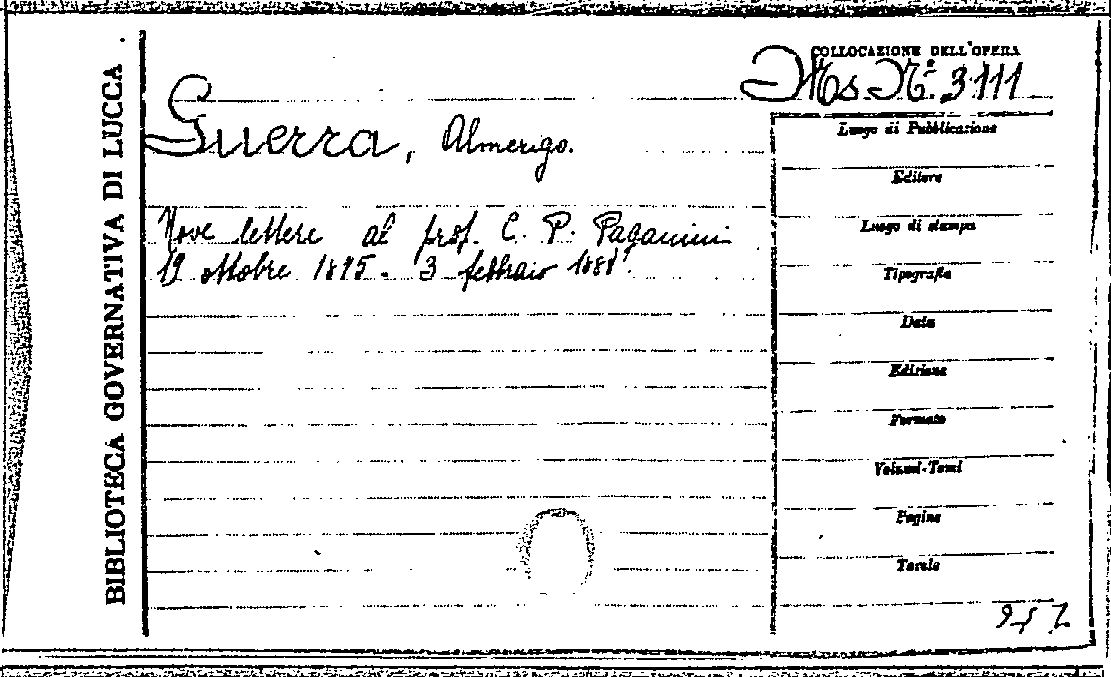 BIBLIOTECA GOVERNATIVA DI LUCCA
COLLOCAZIONE DELL'OPERA
Ms. N.º 3111
Guerra, Almerigo.
Nove lettere al prof. C. P. Paganini
19 ottobre 1875 - 3 febbraio
Luogo di Pubblicazione
Editore
Luogo di stampa
Tipografia
Data
Edizione
Formato
Volumi-Tomi
Pagine
Tavole